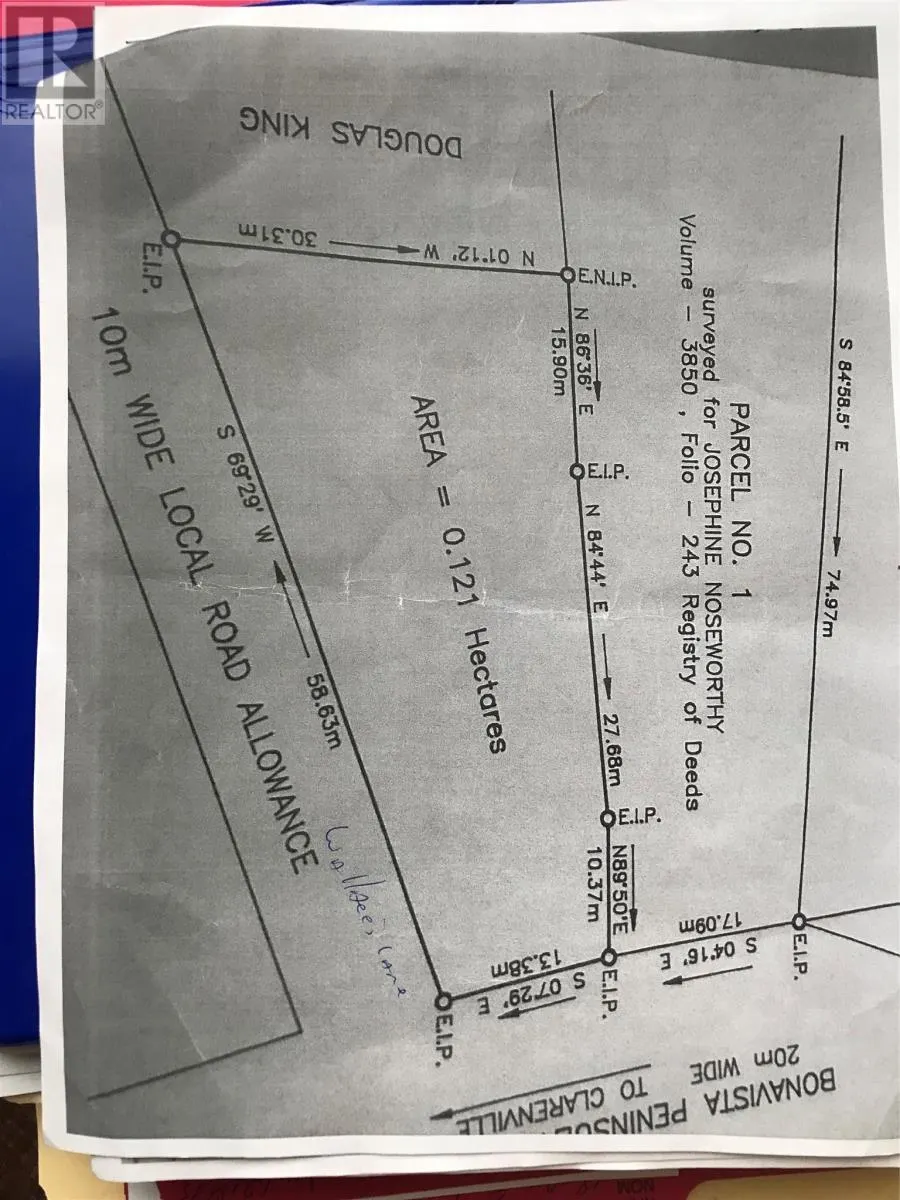 REALTOR®
DOUGLAS KING
S 84°58.5' E
74.97m
PARCEL NO. 1
surveyed for JOSEPHINE NOSEWORTHY
Volume - 3850 , Folio - 243 Registry of Deeds
N 01°12' W
30.31m
E.N.I.P.
N 86°36' E
15.90m
E.I.P.
N 84°44' E
27.68m
E.I.P.
N89°50'E
10.37m
AREA = 0.121 Hectares
E.I.P.
S 69°29' W
58.63m
10m WIDE LOCAL ROAD ALLOWANCE
17.09m
S 04°16' E
E.I.P.
13.38m
S 07°29' E
E.I.P.
E.I.P.
BONAVISTA
20m WIDE
TO CLARENVILLE